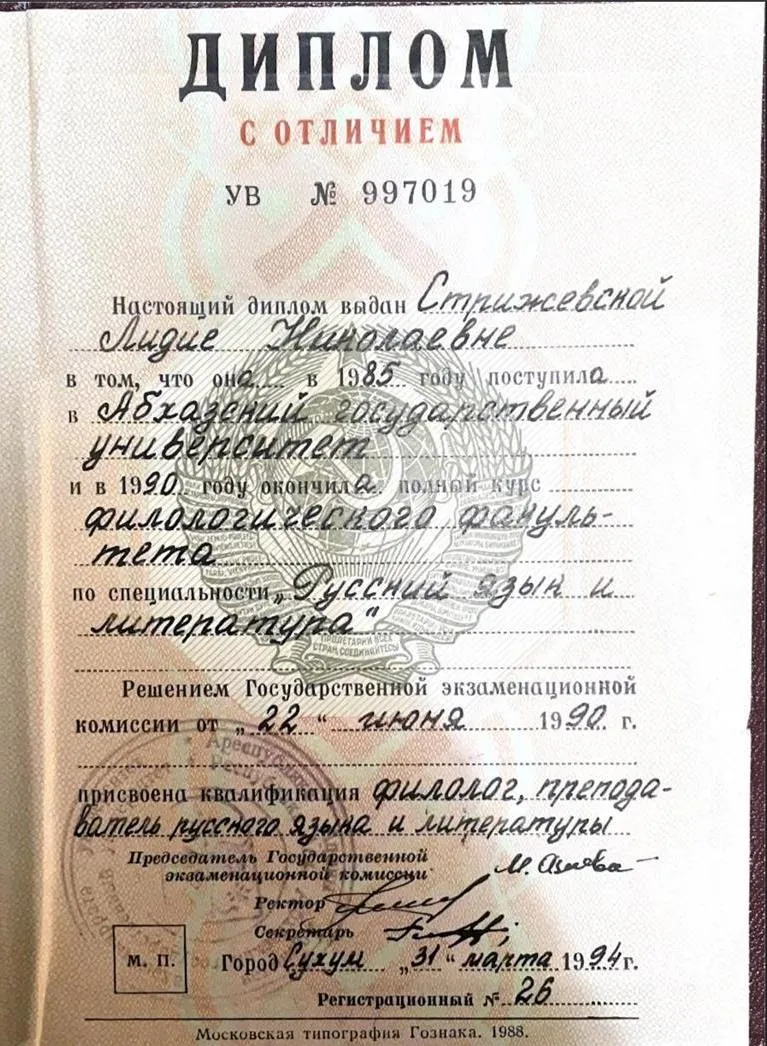 ДИПЛОМ
С ОТЛИЧИЕМ
УВ № 997019
Настоящий диплом выдан Стрижевской
Лидие Николаевне
в том, что она в 1985 году поступила
в Абхазский государственный
университет
и в 1990 году окончила полный курс
филологического факуль-
тета
по специальности „Русский язык и
литература"
Решением Государственной экзаменационной
комиссии от „22“ июня 1990 г.
присвоена квалификация филолог, препода-
ватель русского языка и литературы
Председатель Государственной
экзаменационной комиссии
Ректор
Секретарь
М. П. Город Сухум „31“ марта 1994 г.
Регистрационный № 26
Московская типография Гознака. 1988.
ПРОЛЕТАРИИ ВСЕХ
СТРАН, СОЕДИНЯЙТЕСЬ!